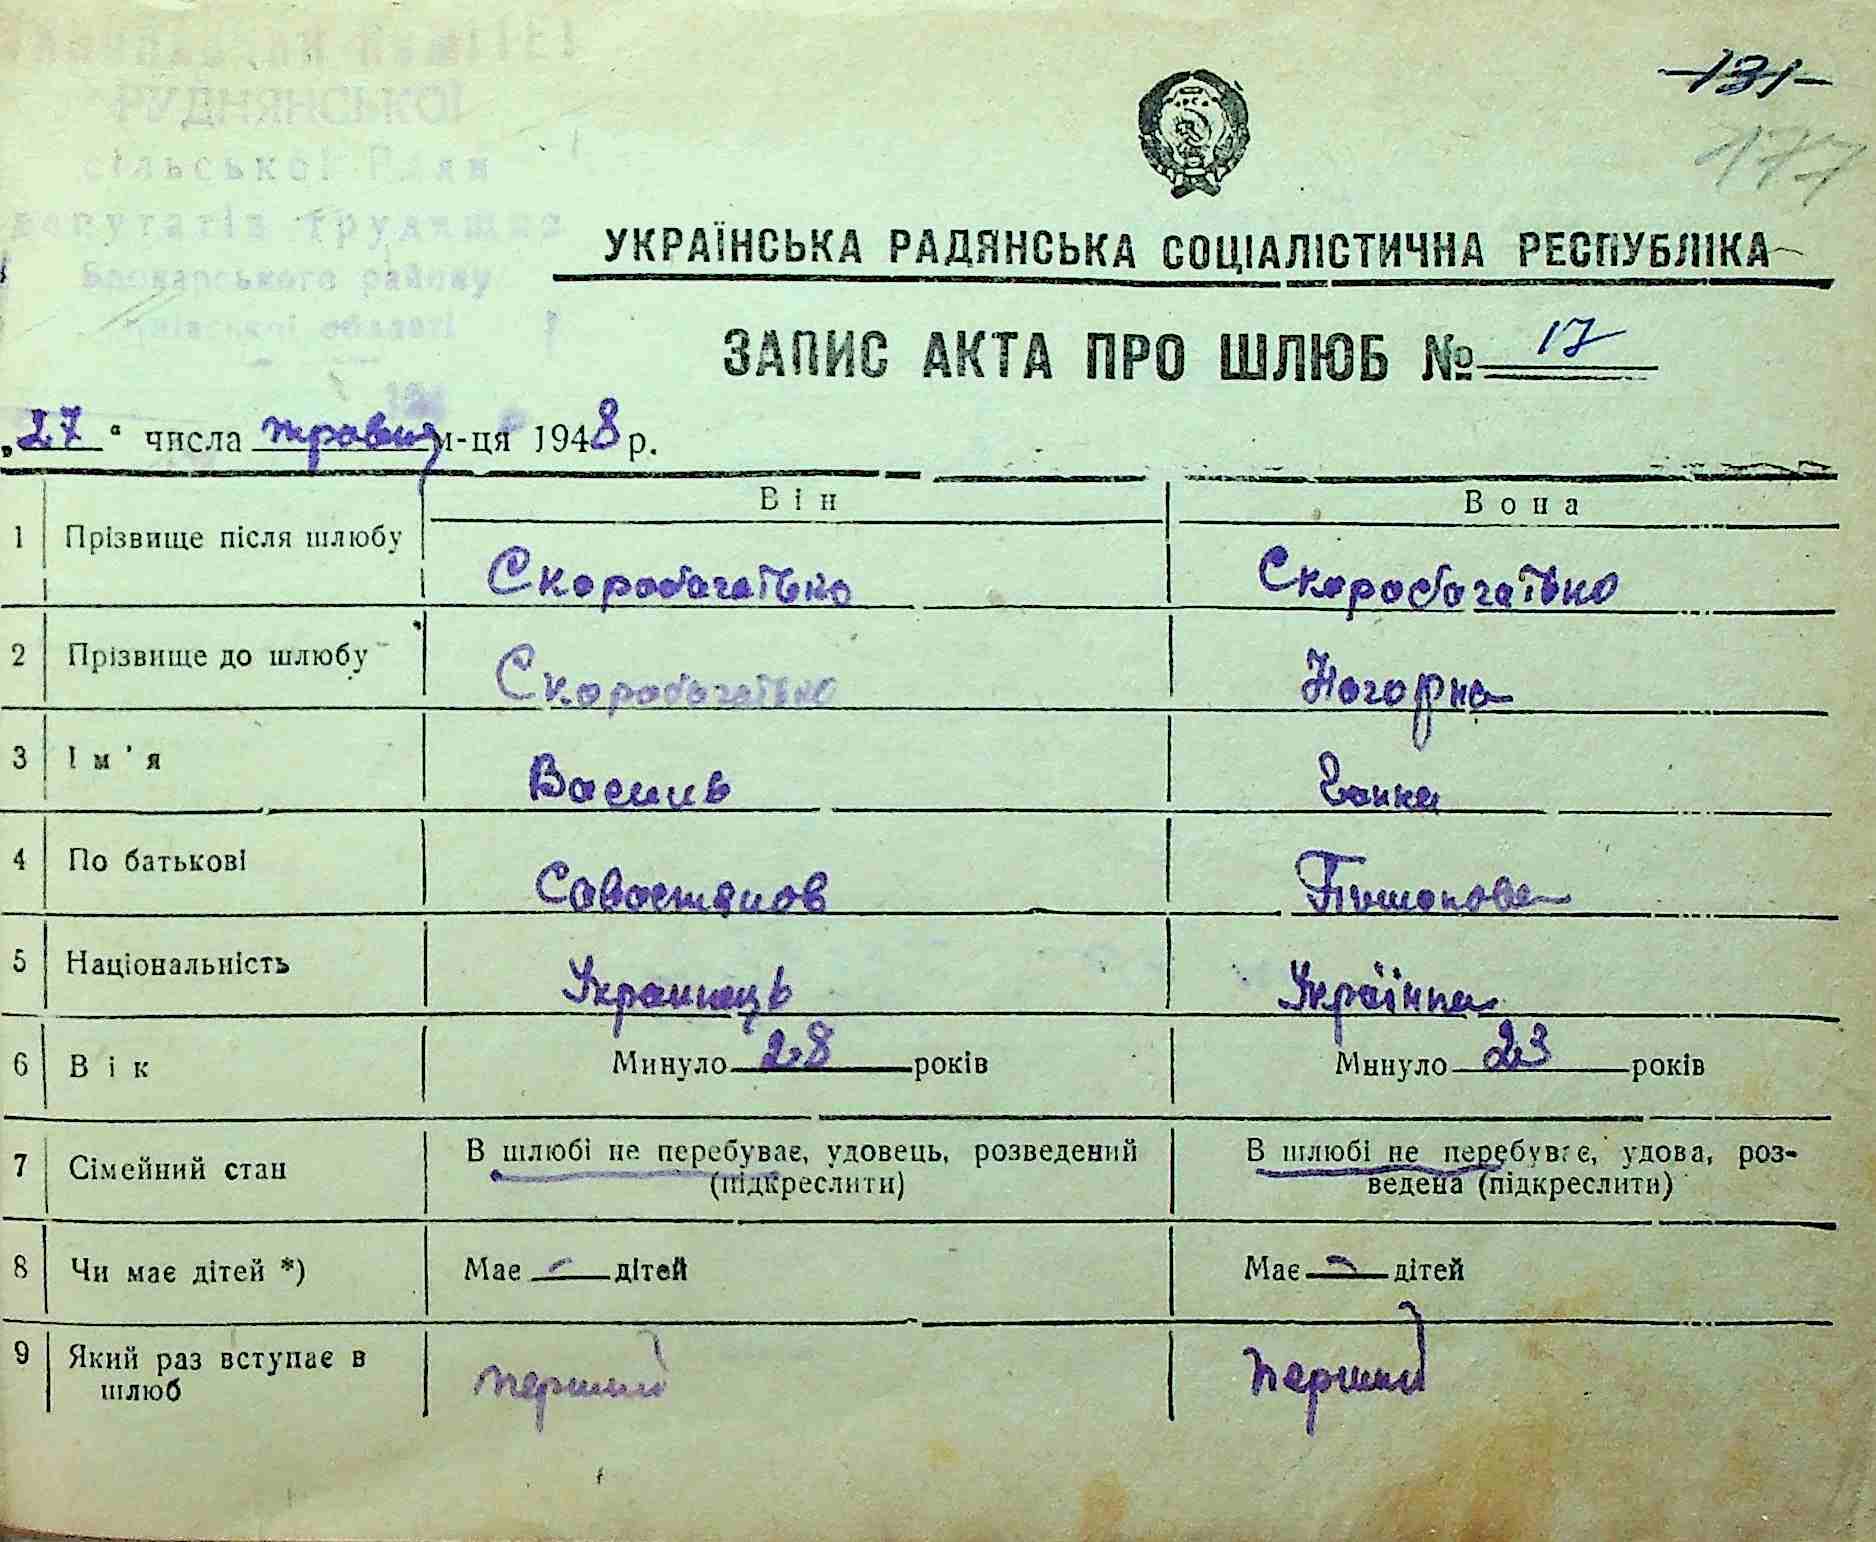 РУДНЯНСЬКОЇ
сільської Ради
депутатів трудящих
Броварського району
Київської області
131
177
УКРАЇНСЬКА РАДЯНСЬКА СОЦІАЛІСТИЧНА РЕСПУБЛІКА
ЗАПИС АКТА ПРО ШЛЮБ № 17
„27“ числа травня м-ця 1948 р.
Він Вона
1 Прізвище після шлюбу Скоробагатько Скоробагатько
2 Прізвище до шлюбу Скоробагатько Нагорна
3 Ім'я Василь Ганна
4 По батькові Савостянов Пимонова
5 Національність Украинець Українка
6 Вік Минуло 28 років Минуло 23 років
7 Сімейний стан В шлюбі не перебуває, удовець, розведений В шлюбі не перебуває, удова, роз-
(підкреслити) ведена (підкреслити)
8 Чи має дітей *) Має – дітей Має – дітей
9 Який раз вступає в
шлюб перший перший